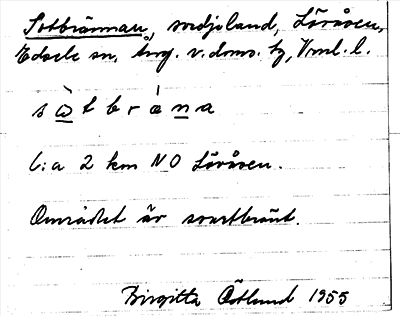 Sotbrännan, svedjeland, Lövåsen,
Edsele sn, Ång. v. doms. tg, Vnl. l.
s ò t b r á n a
l: a 2 km NO Lövåsen.
Området är svartbränt.
Birgitta Östlund 1955